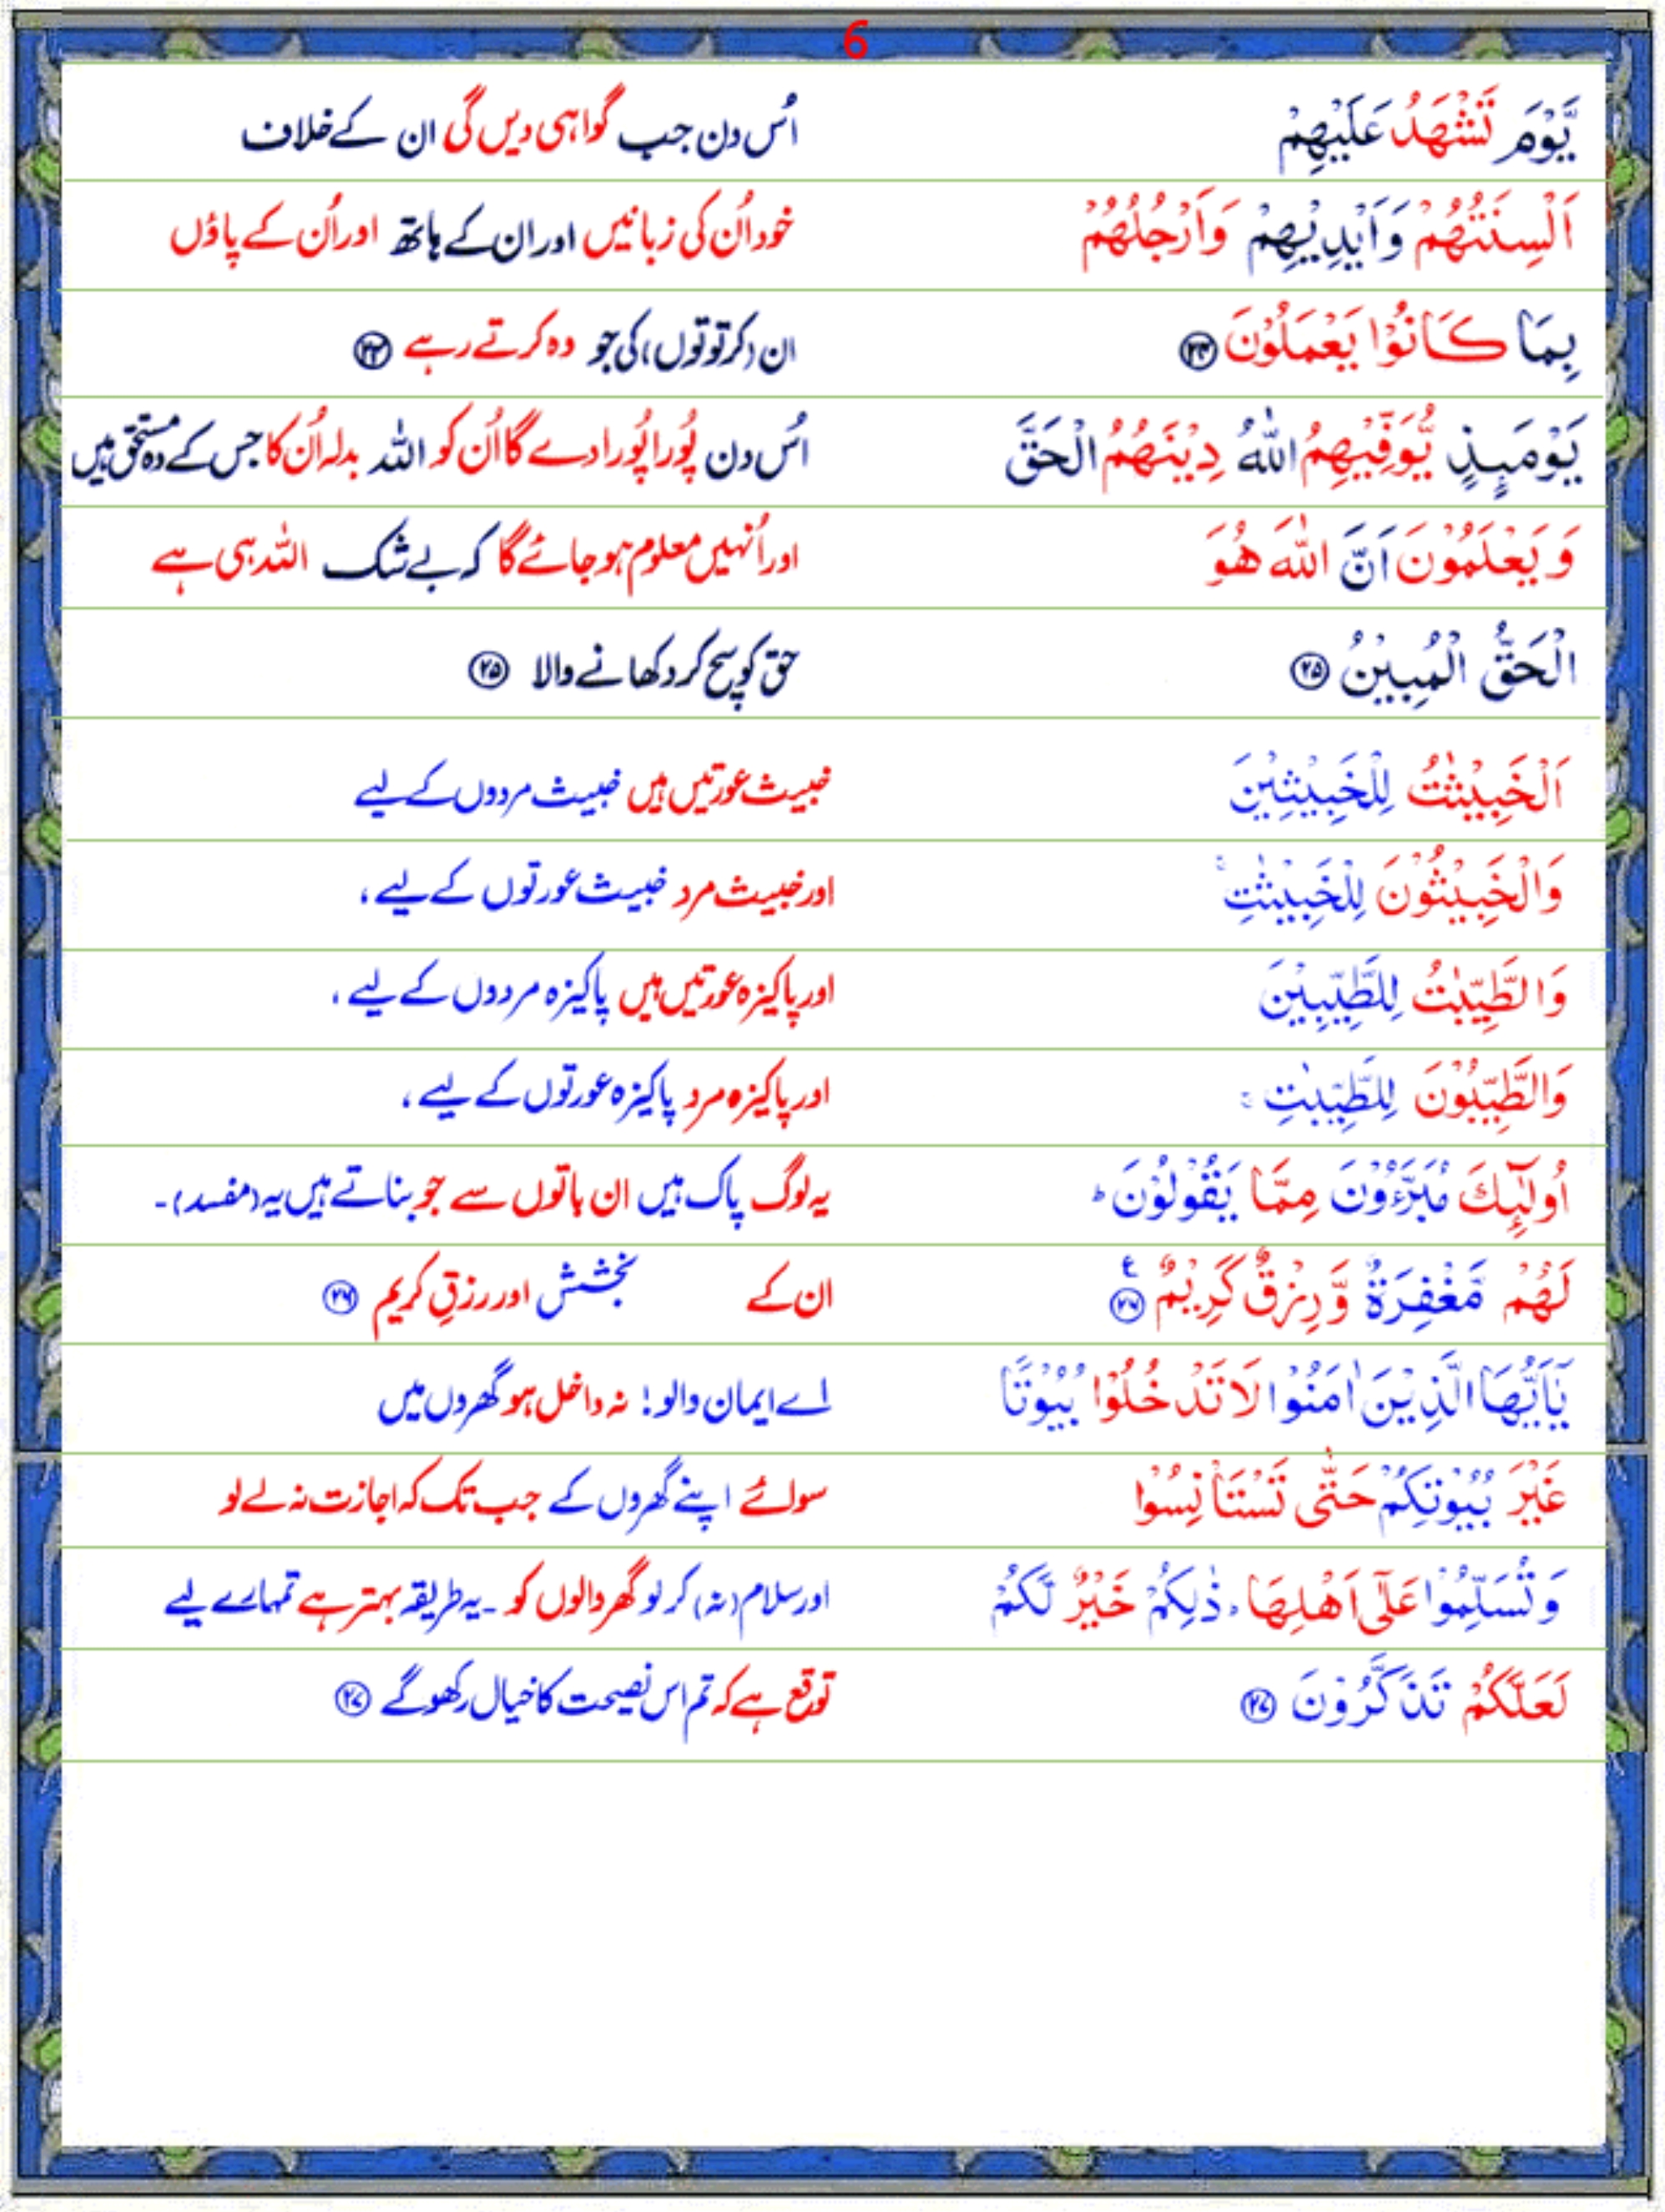 6
يَّوْمَ تَشْهَدُ عَلَيْهِمْ اُس دن جب گواہی دیں گی ان کے خلاف
اَلْسِنَتُهُمْ وَاَيْدِيْهِمْ وَاَرْجُلُهُمْ خود اُن کی زبانیں اور ان کے ہاتھ اور اُن کے پاؤں
بِمَا كَانُوْا يَعْمَلُوْنَ ۲۴ ان (کرتوتوں) کی جو وہ کرتے رہے ۲۴
يَوْمَىِٕذٍ يُّوَفِّيْهِمُ اللّٰهُ دِيْنَهُمُ الْحَقَّ اُس دن پُورا پُورا دے گا اُن کو اللہ بدلہ اُن کا جس کے وہ مستحق ہیں
وَيَعْلَمُوْنَ اَنَّ اللّٰهَ هُوَ اور اُنہیں معلوم ہو جائے گا کہ بے شک اللہ ہی ہے
الْحَقُّ الْمُبِيْنُ ۲۵ حق کو سچ کر دکھانے والا ۲۵
اَلْخَبِيْثٰتُ لِلْخَبِيْثِيْنَ خبیث عورتیں ہیں خبیث مردوں کے لیے
وَالْخَبِيْثُوْنَ لِلْخَبِيْثٰتِ ۚ اور خبیث مرد خبیث عورتوں کے لیے ،
وَالطَّيِّبٰتُ لِلطَّيِّبِيْنَ اور پاکیزہ عورتیں ہیں پاکیزہ مردوں کے لیے ،
وَالطَّيِّبُوْنَ لِلطَّيِّبٰتِ ۚ اور پاکیزہ مرد پاکیزہ عورتوں کے لیے ،
اُولٰٓىِٕكَ مُبَرَّءُوْنَ مِمَّا يَقُوْلُوْنَ ؕ یہ لوگ پاک ہیں ان باتوں سے جو بناتے ہیں یہ (مفسد)۔
لَهُمْ مَّغْفِرَةٌ وَّرِزْقٌ كَرِيْمٌ ع ۲۶ ان کے بخشش اور رزقِ کریم ۲۶
يٰۤاَيُّهَا الَّذِيْنَ اٰمَنُوْا لَا تَدْخُلُوْا بُيُوْتًا اے ایمان والو! نہ داخل ہو گھروں میں
غَيْرَ بُيُوْتِكُمْ حَتّٰى تَسْتَاْنِسُوْا سوائے اپنے گھروں کے جب تک کہ اجازت نہ لے لو
وَتُسَلِّمُوْا عَلٰٓى اَهْلِهَا ؕ ذٰلِكُمْ خَيْرٌ لَّكُمْ اور سلام (نہ) کر لو گھر والوں کو ۔ یہ طریقہ بہتر ہے تمہارے لیے
لَعَلَّكُمْ تَذَكَّرُوْنَ ۲۷ توقع ہے کہ تم اس نصیحت کا خیال رکھو گے ۲۷